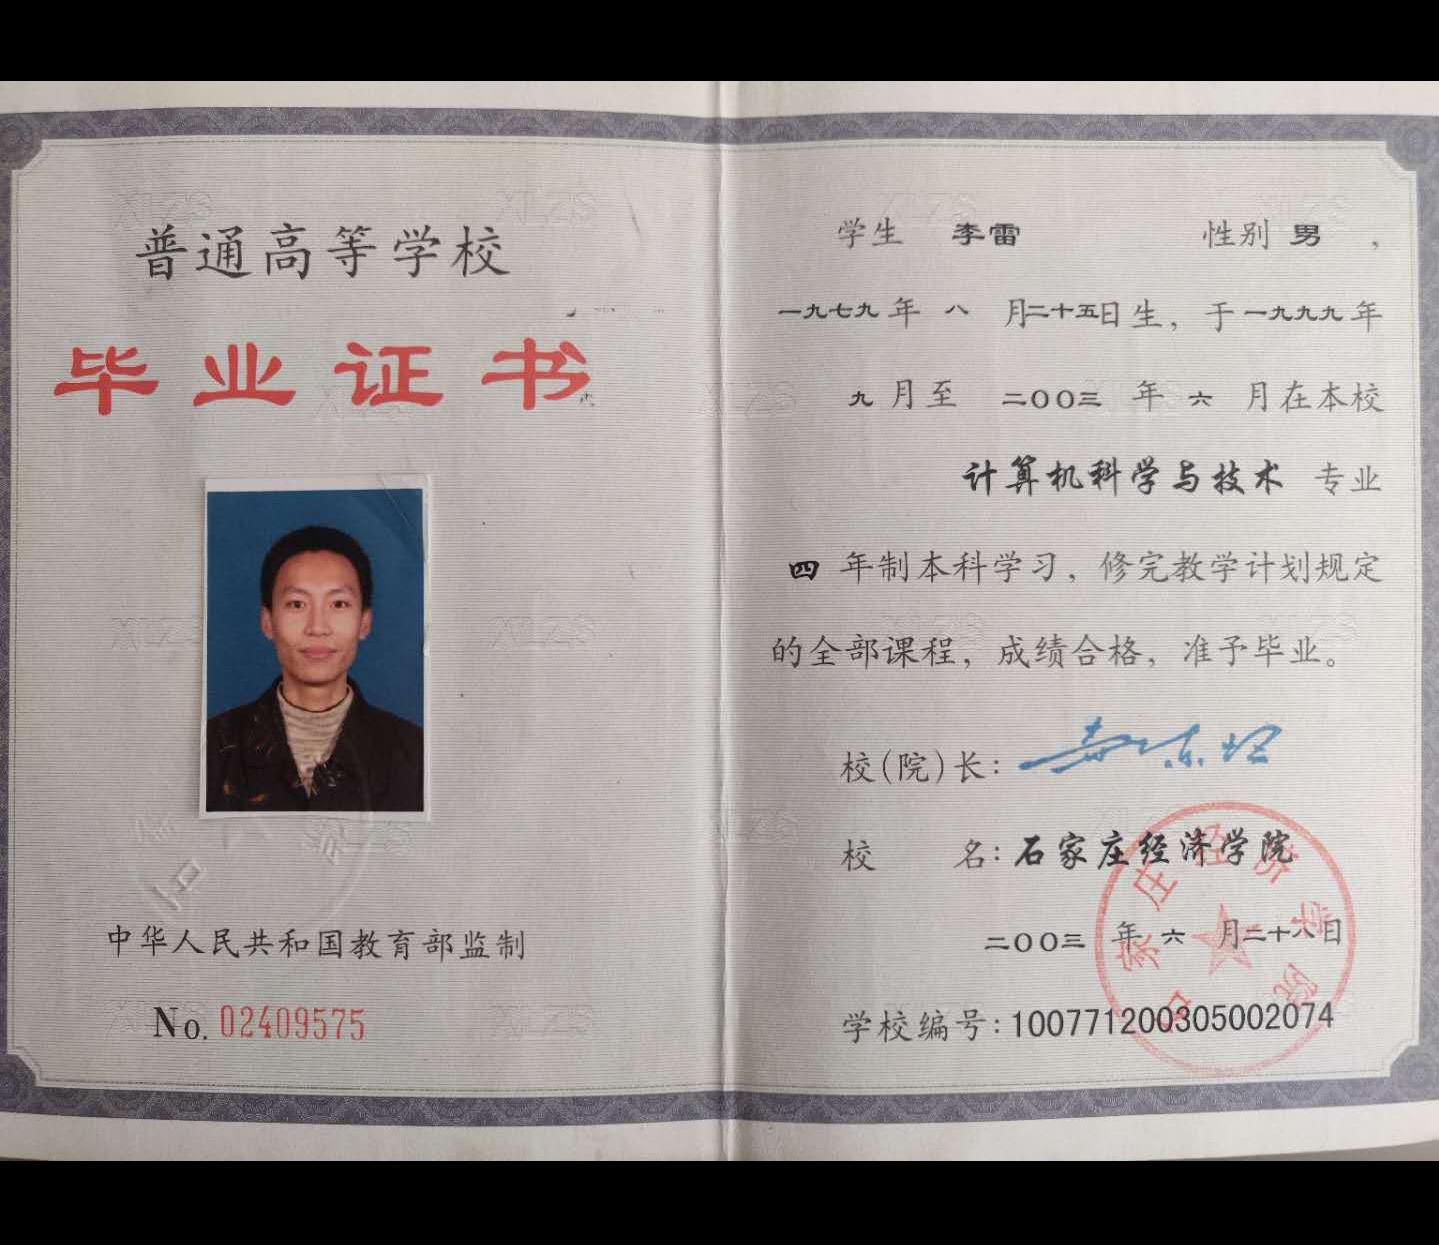 普通高等学校
毕业证书
中华人民共和国教育部监制
No. 02409575
学生 李雷 性别 男 ,
一九七九年 八 月二十五日生, 于一九九九年
九 月至 二00三 年 六 月在本校
计算机科学与技术 专业
四 年制本科学习, 修完教学计划规定
的全部课程, 成绩合格, 准予毕业。
校(院)长:
校 名: 石家庄经济学院
二00三 年 六 月二十八日
学校编号: 100771200305002074
石家庄经济学院
XLZS